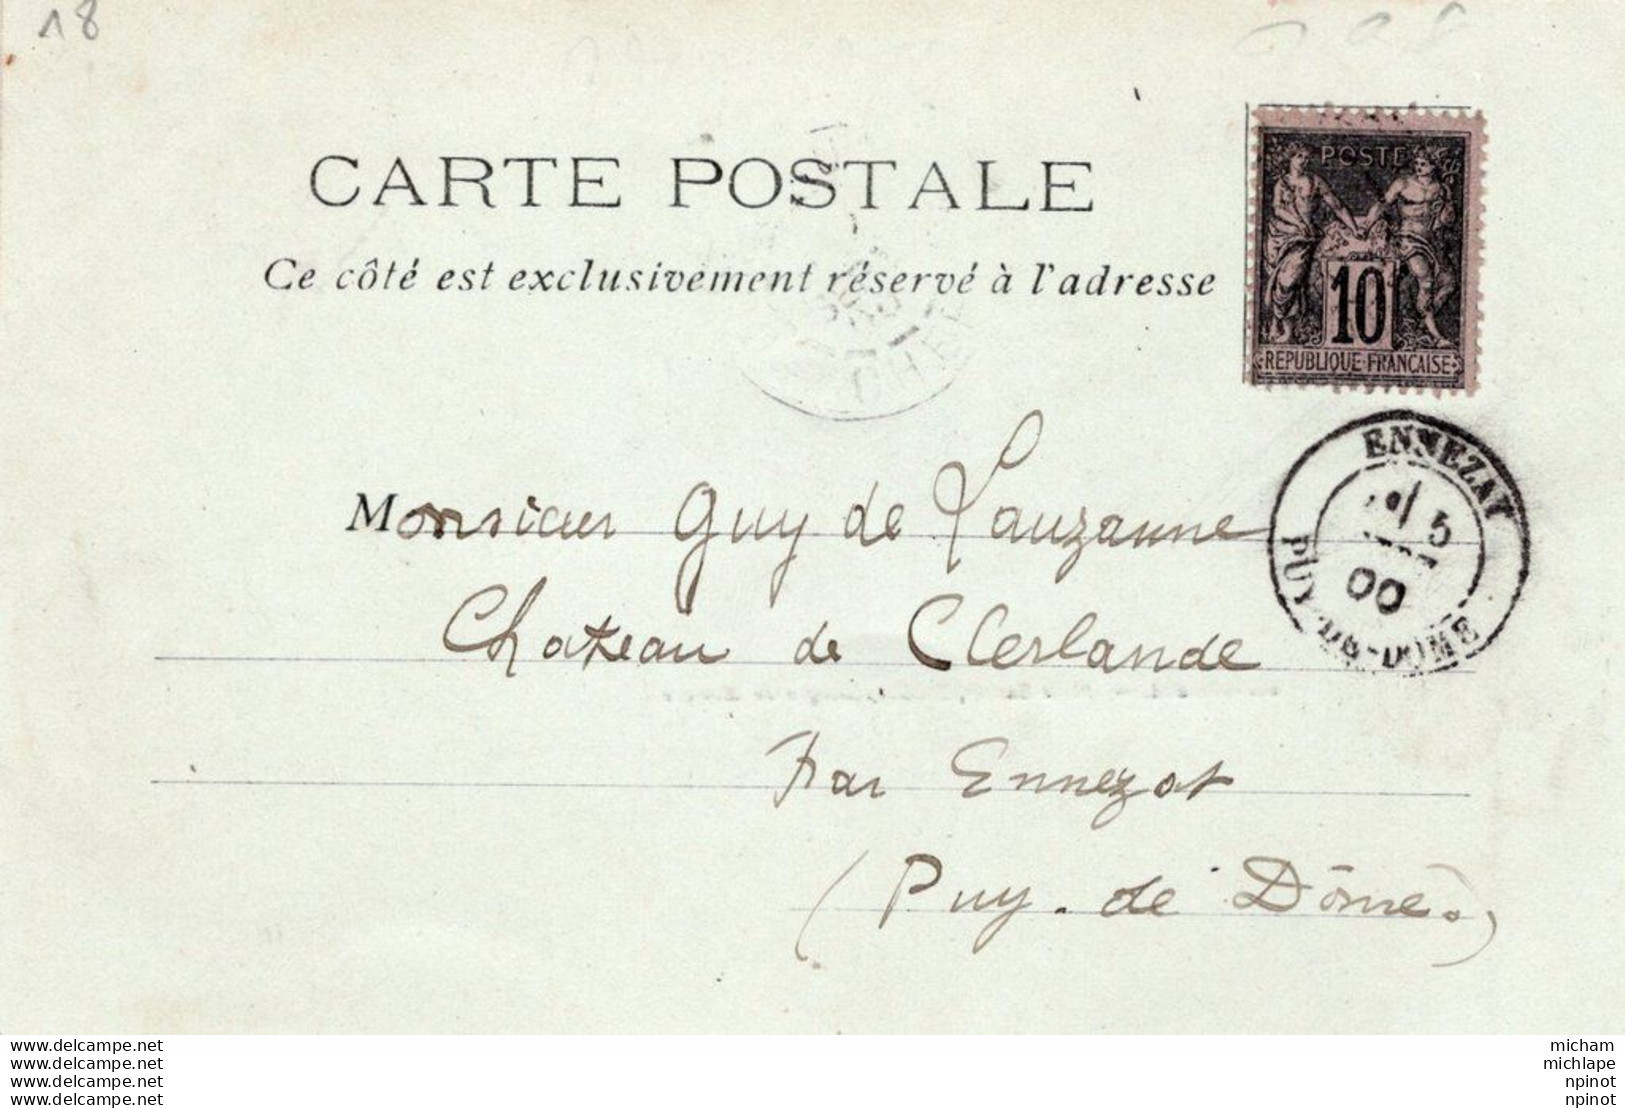 18
CARTE POSTALE
Ce côté est exclusivement réservé à l'adresse
POSTE
10
REPUBLIQUE FRANCAISE
ENNEZAT
5
00
PUY-DE-DOME
Monsieur Guy de Lauzanne
Chateau de Clerlande
Par Ennezat
(Puy-de Dôme.)
www.delcampe.net
www.delcampe.net
www.delcampe.net
www.delcampe.net
micham
michlape
npinot
npinot